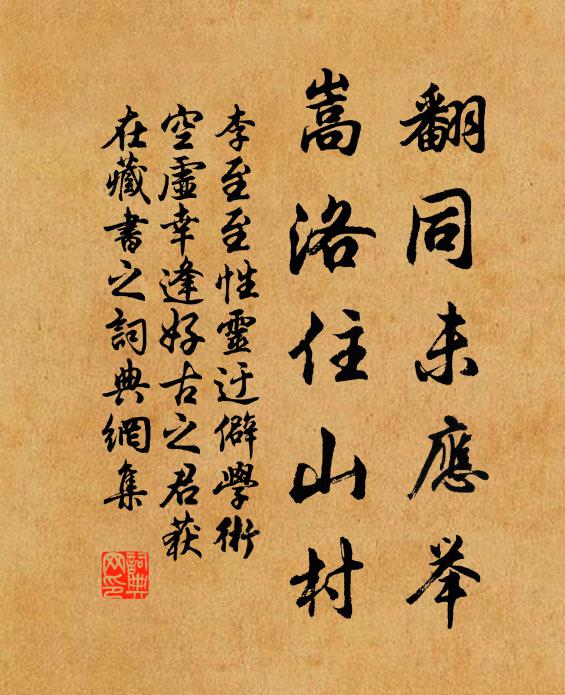 翻同未應举
嵩洛住山村
李至至性靈迂僻學術
空虛幸逢好古之君获
在藏書之詞典網集
詞典網印